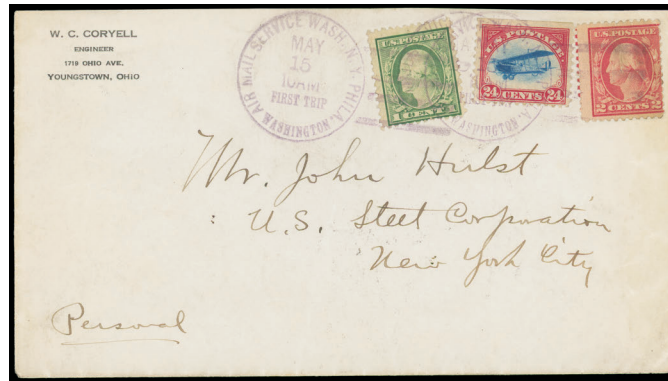 W. C. CORYELL
ENGINEER
1718 OHIO AVE.
YOUNGSTOWN, OHIO
AIR MAIL SERVICE WASH. N.Y. PHILA.
MAY
15
10AM
FIRST TRIP
WASHINGTON
U.S. POSTAGE
1 CENT 1
U.S. POSTAGE
24 CENTS 24
U.S. POSTAGE
2 CENTS 2
WASHINGTON
Mr. John Hulst
U.S. Steel Corporation
New York City
Personal